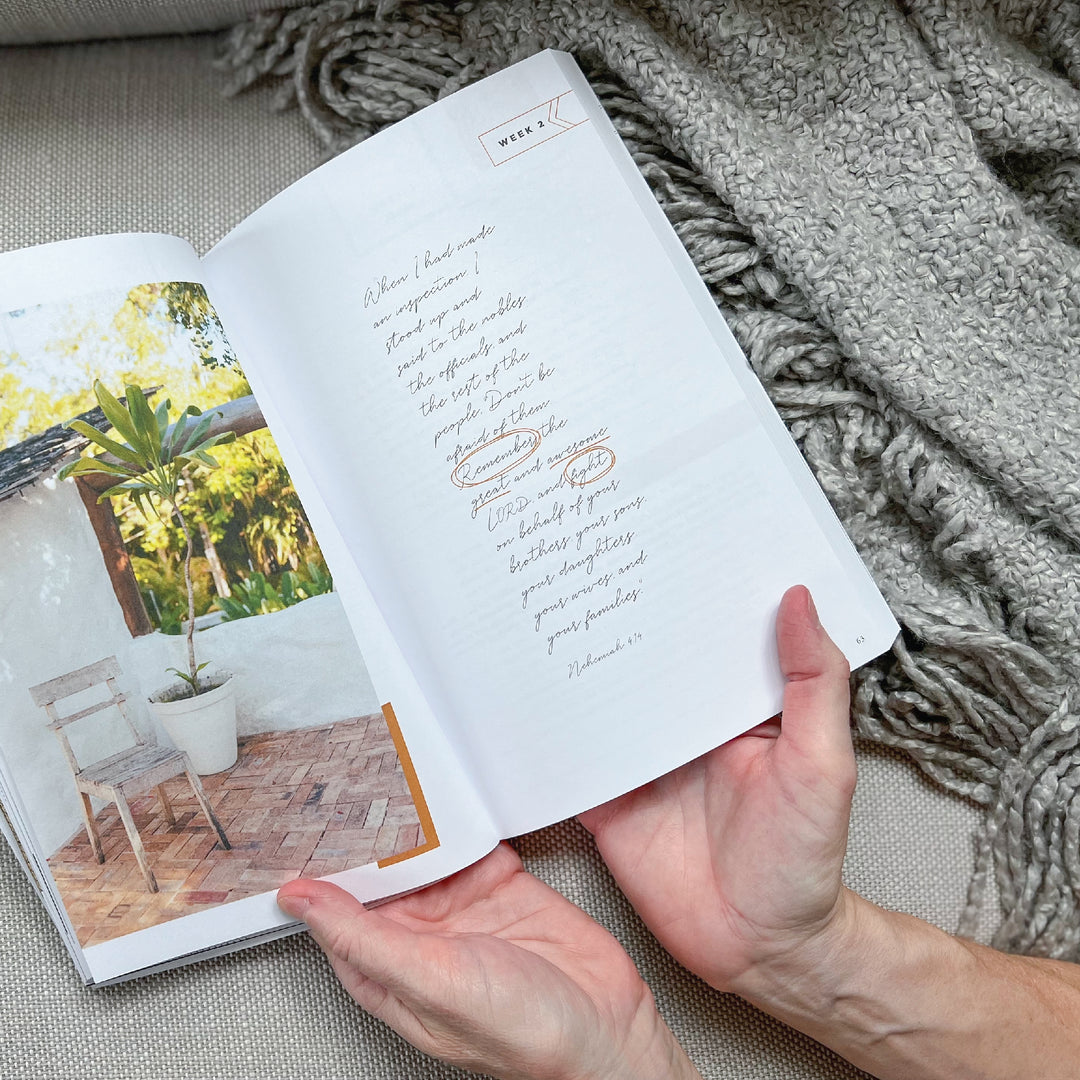 WEEK 2
When I had made
an inspection, I
stood up and
said to the nobles,
the officials, and
the rest of the
people, "Don't be
afraid of them.
Remember the
great and awesome
LORD, and fight
on behalf of your
brothers, your sons,
your daughters,
your wives, and
your families."
Nehemiah 4:14
63